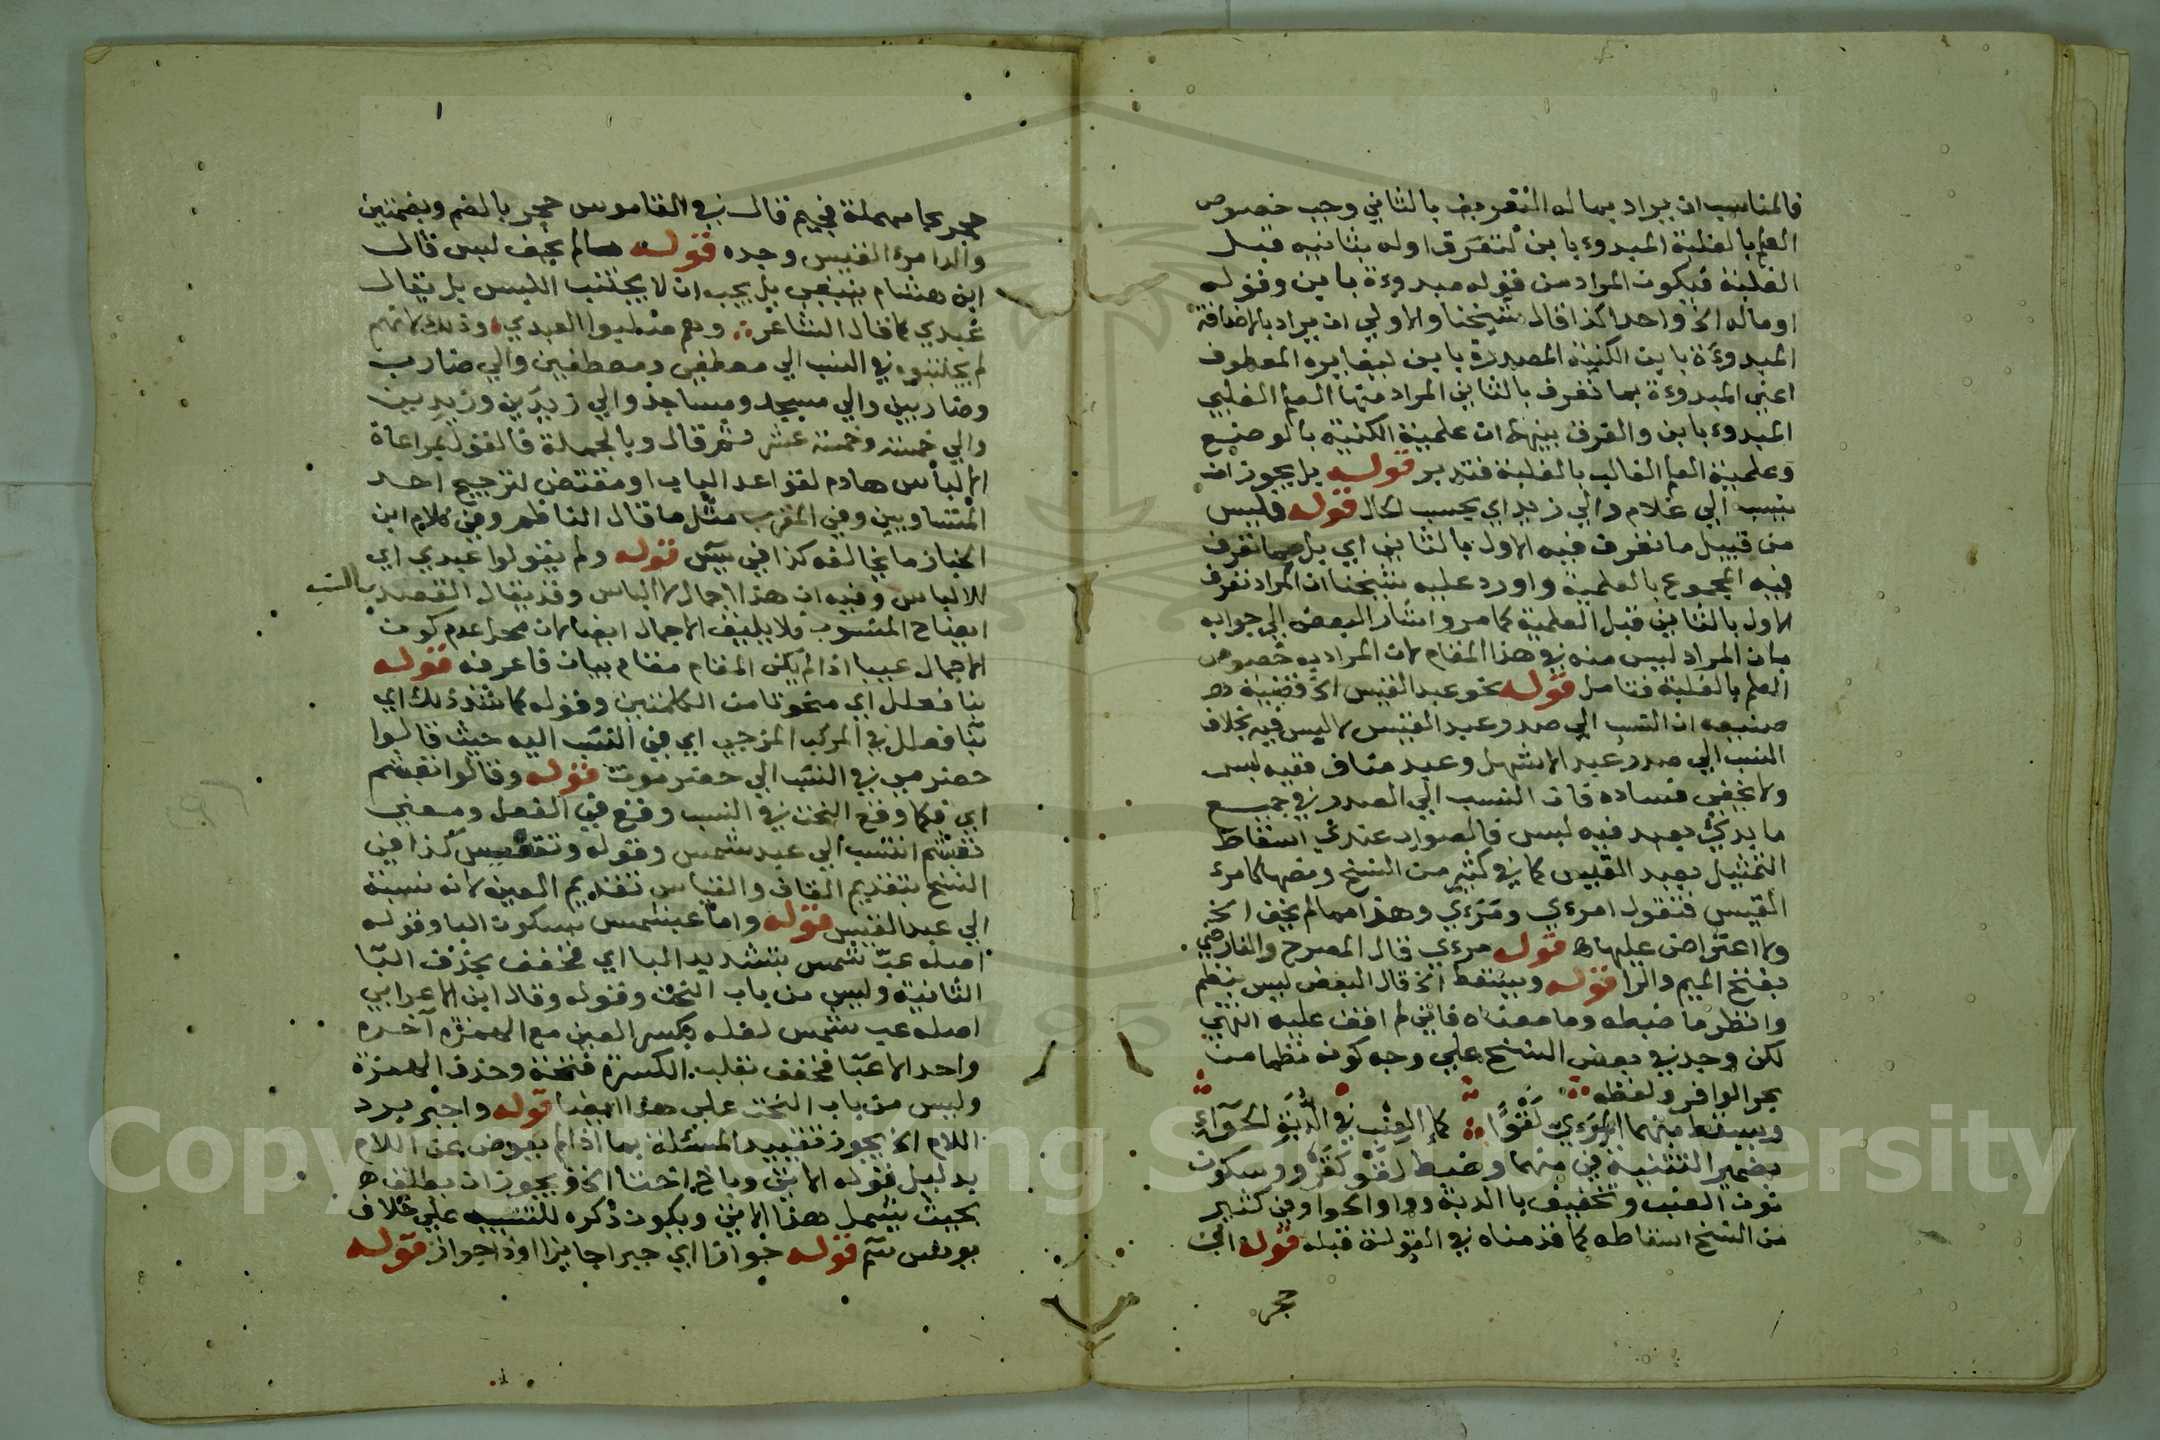 فالمناسب ان يراد بماله التعريف بالثاني وجب خصوص
العلم بالغلبة المبدوء بابن لتعرف اوله بثانيه قبل
الغلبة فيكون المراد من قوله مبدوءة بابن وقوله
او ماله الخ واحدا كذا قال شيخنا والاولي ان يراد بالاضافة
المبدوءة بابن الكنية المصدرة بابن ليغايره المعطوف
اعني المبدوءة بما تعرف بالثاني المراد منها العلم الغلبي
المبدوء بابن والفرق بينهما ان علمية الكنية بالوضع
وعلمية العلم الغالب بالغلبة فتدبر قوله بل يجوز ان
ينسب الي غلام والي زيد اي بحسب الحال قوله فليس
من قبيل ما تعرف فيه الاول بالثاني اي بل مما تعرف
فيه المجموع بالعلمية واورد عليه شيخنا ان المراد تعرف
الاول بالثاني قبل العلمية كما مر واشار البعض الي جوابه
بان المراد ليس منه في هذا المقام لان المراد به خصوص
العلم بالغلبة فتامل قوله نحو عبد القيس الخ قضية
صنيعه ان النسب الي صدر عبد القيس لا ليس فيه بخلاف
النسب الي صدر عبد الاشهل وعبد مناف ففيه لبس
ولا يخفي فساده فان النسب الي الصدر في جميع
ما بدئ بعبد فيه لبس فالصواب عندي اسقاط
التمثيل بعبد القيس كما في كثير من النسخ ونصها كامرء
القيس فتقول امرءي ومرءي وهذا مما لم يخف الخ
ولا اعتراض عليها اه قوله مرءي قال المصرح والفارضي
بفتح الميم والرا قوله ويسقط الخ قال البعض ليس بنظم
وانظر ما ضبطه وما معناه فاني لم اقف عليه انتهي
لكن وجد في بعض النسخ علي وجه كونه نظما من
بحر الوافر ولفظه
ويسقط بينهما المرءي لغوا كما في الدية الحوار
بضمير التثنية في منهما وضبط لغوا وسكون
نون العنب وتخفيف يا الدية وواو الحوا وفي كثير
من النسخ اسقاطه كما قدمناه في القولة قبله قوله ابن
حجر
حجر بحا مهملة فجيم قال في القاموس حجر بالضم وبضمتين
والد امرء القيس وجده قوله ما لم يخف لبس قال
ابن هشام ينبغي بل يجب ان لا يجتنب اللبس بل يقال
عبدي كما قال الشاعر وهم صلبوا العبدي وذلك لانهم
لم يجتنبوه في النسب الي مصطفي ومصطفين والي ضارب
وضاربين والي مسجد ومساجد والي زيدين وزيدين
والي خمسة وخمسة عشر ثم قال وبالجملة فالقول بمراعاة
الالباس هادم لقواعد الباب او مقتض لترجيح احد
المتساويين وفي المقرب مثل ما قال الناظم وفي كلام ابن
الخباز ما يخالفه كذا في يس قوله ولم يقولوا عبدي اي
للالباس وفيه ان هذا اجمال لا الباس وقد يقال القصد بالنسب
ايضاح المنسوب فلا يليق الاجمال ايضا لان محل عدم كون
الاجمال عيبا اذا لم يكن المقام مقام بيان فاعرفه قوله
بنا فعلل اي منحوتا من الكلمتين وقوله كما شذ ذلك اي
بنا فعلل في المركب المزجي اي في النسب اليه حيث قالوا
حضرمي في النسب الي حضرموت قوله وقالوا تعبشم
اي فكما وقع النحت في النسب وقع في الفعل ومعني
تعبشم انتسب الي عبد شمس وقوله وتعقبس كذا في
النسخ بتقديم القاف والقياس تقديم العين لانه نسبة
الي عبد القيس قوله واما عبشمس بسكون البا وقوله
اصله عب شمس بتشديد البا اي فخفف بحذف البا
الثانية وليس من باب النحت وقوله وقال ابن الاعرابي
اصله عب شمس لعله بكسر العين مع الهمزة آخره
واحد الاعبا فخفف بقلب الكسرة فتحة وحذف الهمزة
وليس من باب النحت علي هذا ايضا قوله واجبر برد
اللام الخ يجوز تقييد المسئلة بما اذا لم يعوض عن اللام
بدليل قوله الاتي وباخ اختا الخ ويجوز ان يطلق ه
بحيث يشمل هذا الاتي ويكون ذكره للتنبيه علي خلاف
يونس ثم قوله جوازا اي جبرا جايزا او ذا جواز قوله